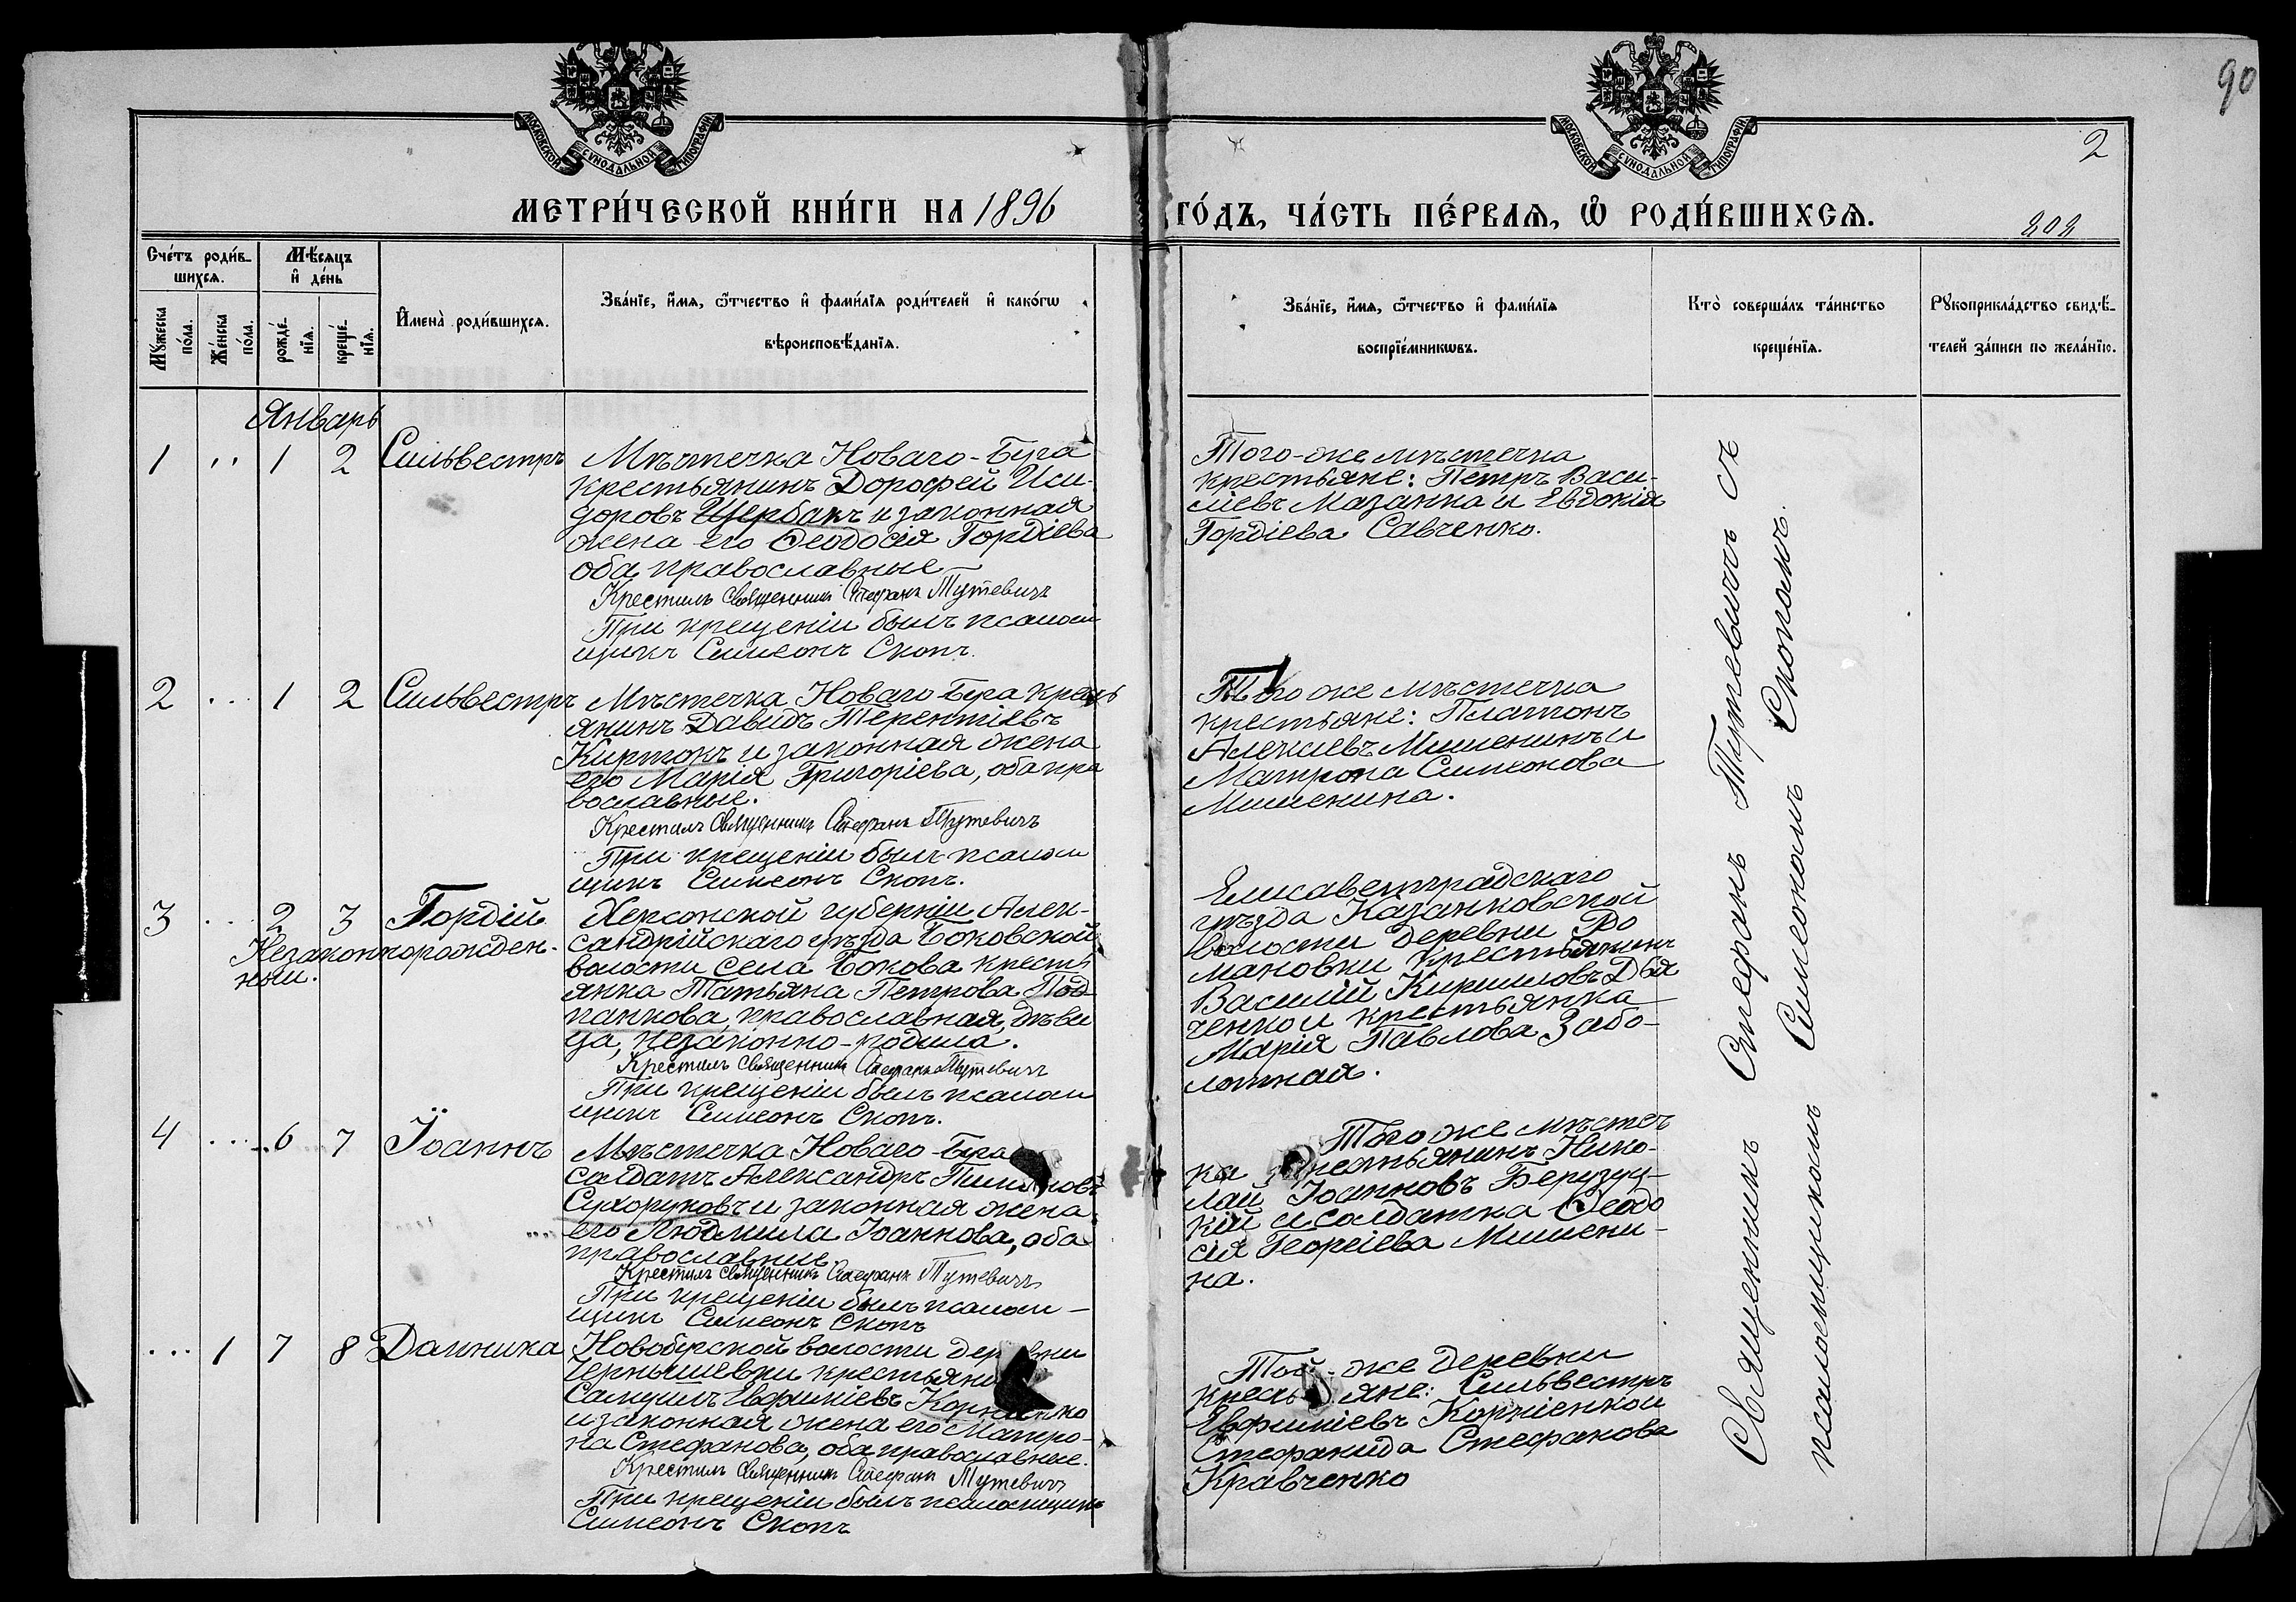 90
2
МОСКОВСКОЙ СѴНОДАЛЬНОЙ ТИПОГРАФІИ
МОСКОВСКОЙ СѴНОДАЛЬНОЙ ТИПОГРАФІИ
МЕТРИ́ЧЕСКОЙ КНИ́ГИ НА 1896 ГО́ДЪ, ЧА́СТЬ ПЕ́РВАѦ, Ѿ РОДИ́ВШИХСѦ.
202
Сче́тъ роди́в-
шихсѧ.
Мꙋжеска по́ла.
Же́нска по́ла.
Мѣ́сѧцъ
и҆ де́нь
рожде́-
нїѧ.
креще́-
нїѧ.
И҆мена̀ роди́вшихсѧ.
Зва́нїе, и҆́мѧ, ѻ҆́тчество и҆ фами́лїѧ роди́телей и҆ како́гѡ
вѣроисповѣ́данїѧ.
Зва́нїе, и҆́мѧ, ѻ҆́тчество и҆ фами́лїѧ
воспрїе́мникѡвъ.
Кто̀ соверша́лъ та́инство
креще́нїѧ.
Рꙋкоприкла́дство свидѣ́-
телей за́писи по жела́нїю.
Январь
1 ,, 1 2 Сильвестръ
Мѣстечка Новаго-Буга
крестьянинъ Дорофей Иси-
доровъ Щербакъ и законная
жена его Ѳеодосія Гордіева
оба православные
Крестилъ священникъ Стефанъ Тутевичъ
При крещеніи былъ псалом
щикъ Симеонъ Скопъ.
Того-же мѣстечка
крестьяне: Петръ Васи-
ліевъ Мазанка и Евдокія
Гордіева Савченко.
2 ... 1 2 Сильвестръ
Мѣстечка Новаго Буга крестъ
янинъ Давидъ Терентіевъ
Киртокъ и законная жена
его Марія Григоріева, оба пра
вославные.
Крестилъ Священникъ Стефанъ Тутевичъ
При крещеніи былъ псалом
щикъ Симеонъ Скопъ.
Того же мѣстечка
крестьяне: Платонъ
Алексіевъ Мишенинъ и
Матрона Симеонова
Мишенина.
3 ... 2 3 Гордій
Незаконнорожден-
ный.
Херсонской губерніи Алек-
сандрійскаго уѣзда Боковской
волости села Бокова кресть
янка Татьяна Петрова Под
панкова, православная, дѣви
ца, незаконно-родила.
Крестилъ священникъ Стефанъ Тутевичъ
При крещеніи былъ псалом
щикъ Симеонъ Скопъ.
Елисаветградскаго
уѣзда Казанковской
волости деревни Ро
мановки крестьянинъ
Василій Кирилловъ Дья
ченко и крестьянка
Марія Павлова Забо-
лотная.
4 ... 6 7 Іоаннъ
Мѣстечка Новаго-Буга
салдатъ Александръ
Сухоруковъ и законная жена
его Людмила Іоаннова, оба
православные.
Крестилъ священникъ Стефанъ Тутевичъ
При крещеніи былъ псалом-
щикъ Симеонъ Скопъ
Того же мѣстеч
ка крестьянинъ Нико-
лай Іоанновъ Берузуц-
кій и солдатка Ѳеодо
сія Георгіева Мишени-
на.
... 1 7 8 Домника
Новобугской волости деревни
Чернышевки крестьяни
Самуилъ Евфиміевъ Корніенко
и законная жена его Матро-
на Стефанова, оба православные.
Крестилъ Священникъ Стефанъ Тутевичъ
При крещеніи былъ псаломщикъ
Симеонъ Скопъ
Той-же деревни
крестьяне: Сильвестръ
Евфиміевъ Корніенко и
Стефанида Стефанова
Кравченко
Священникъ Стефанъ Тутевичъ съ
псаломщикомъ Симеономъ Скопомъ.